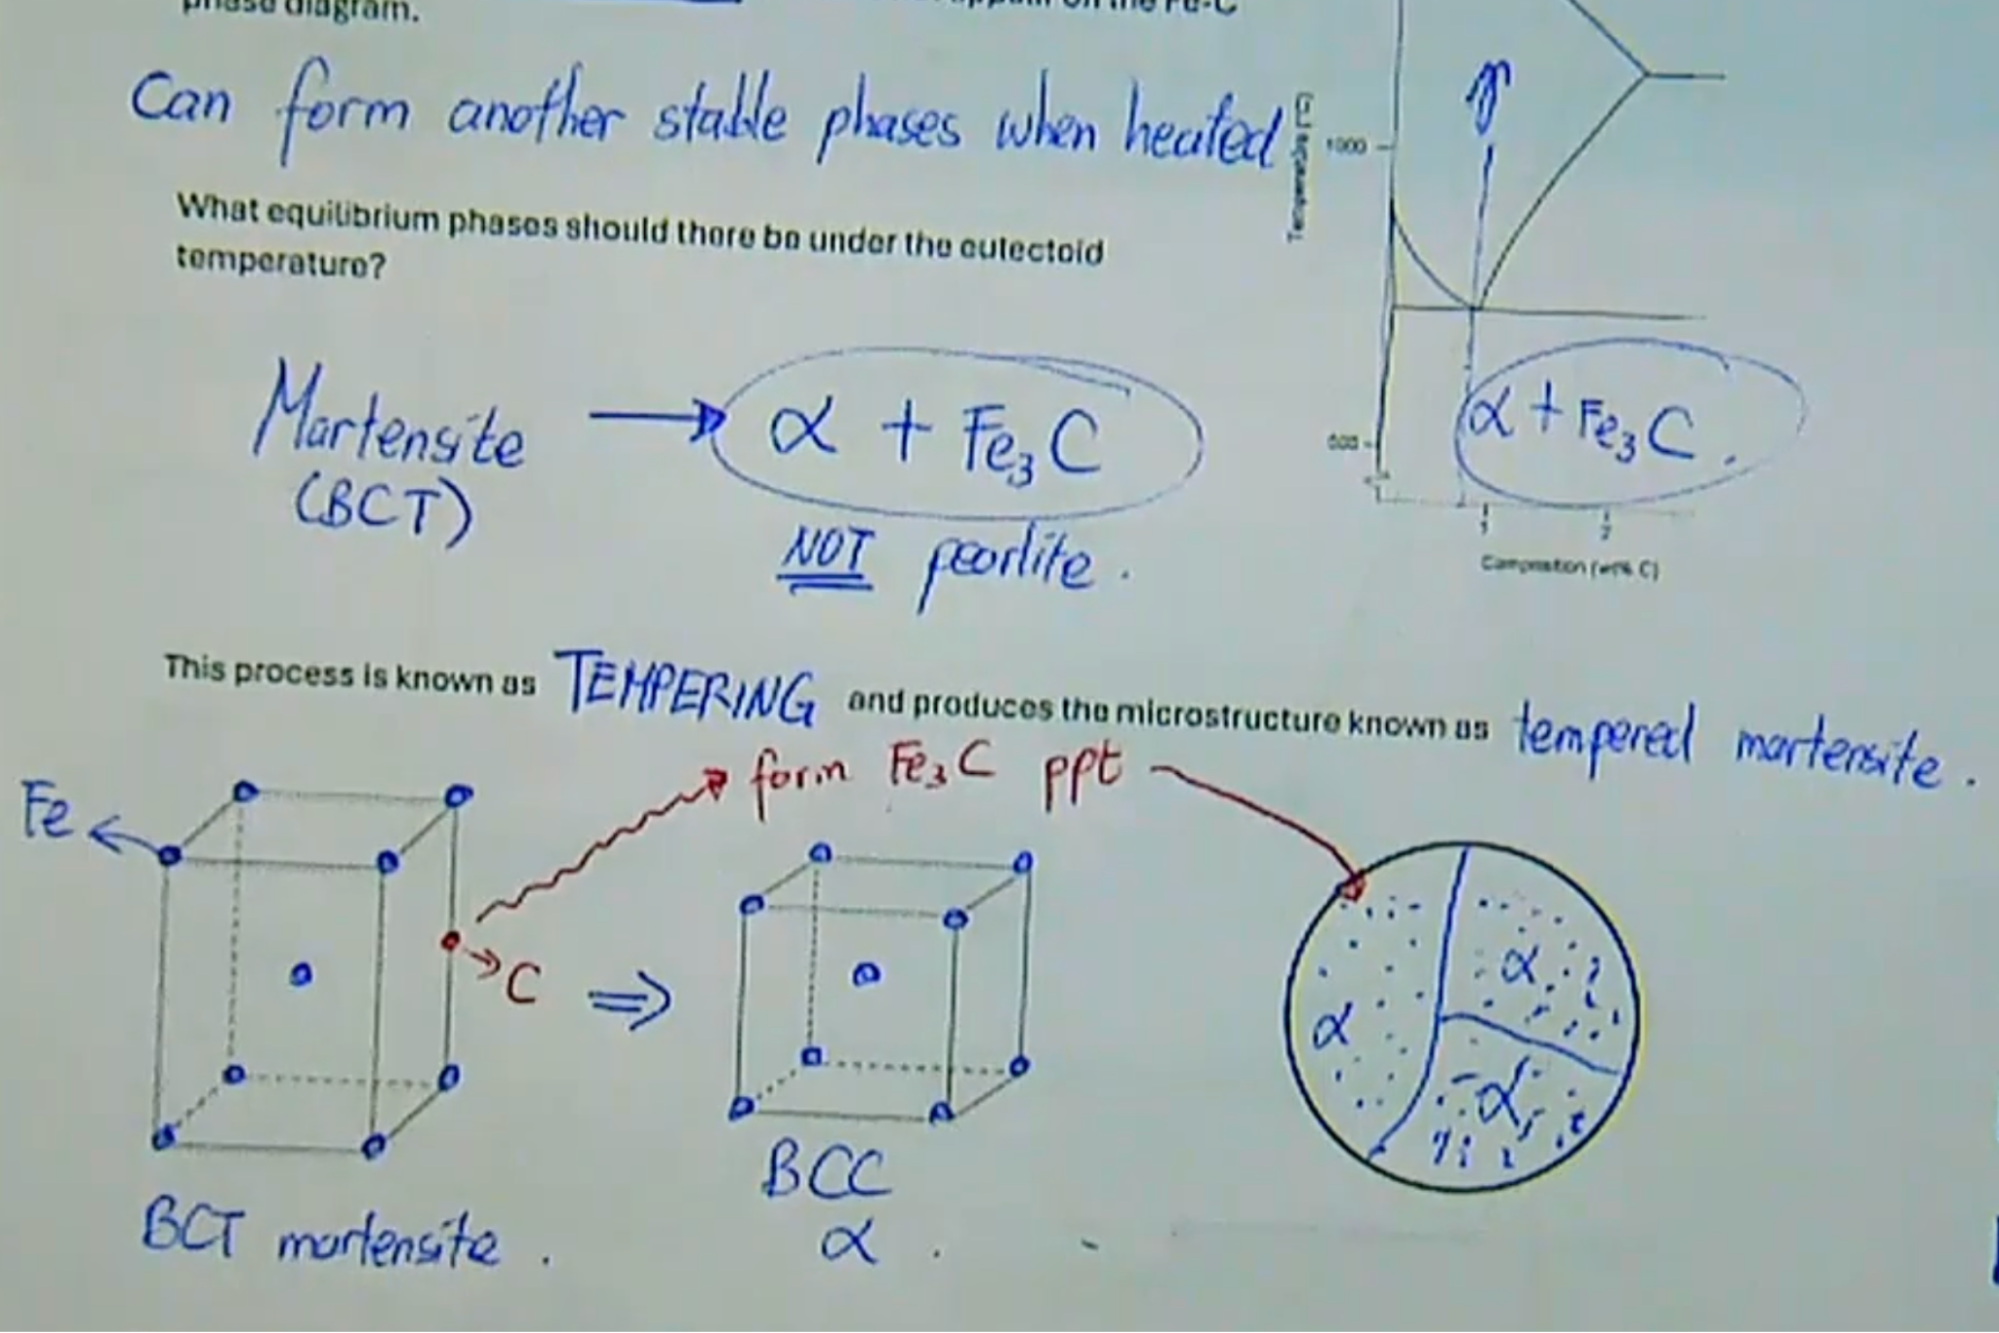 phase diagram.
on the Fe-C
Can form another stable phases when heated
What equilibrium phases should there be under the eutectoid
temperature?
Martensite → α + Fe₃C
(BCT)
NOT pearlite.
Temperature (°C)
1000
500
α + Fe₃C.
1
2
Composition (wt% C)
This process is known as TEMPERING and produces the microstructure known as tempered martensite.
form Fe₃C ppt
Fe
C
α
α
α
BCT martensite.
BCC
α.